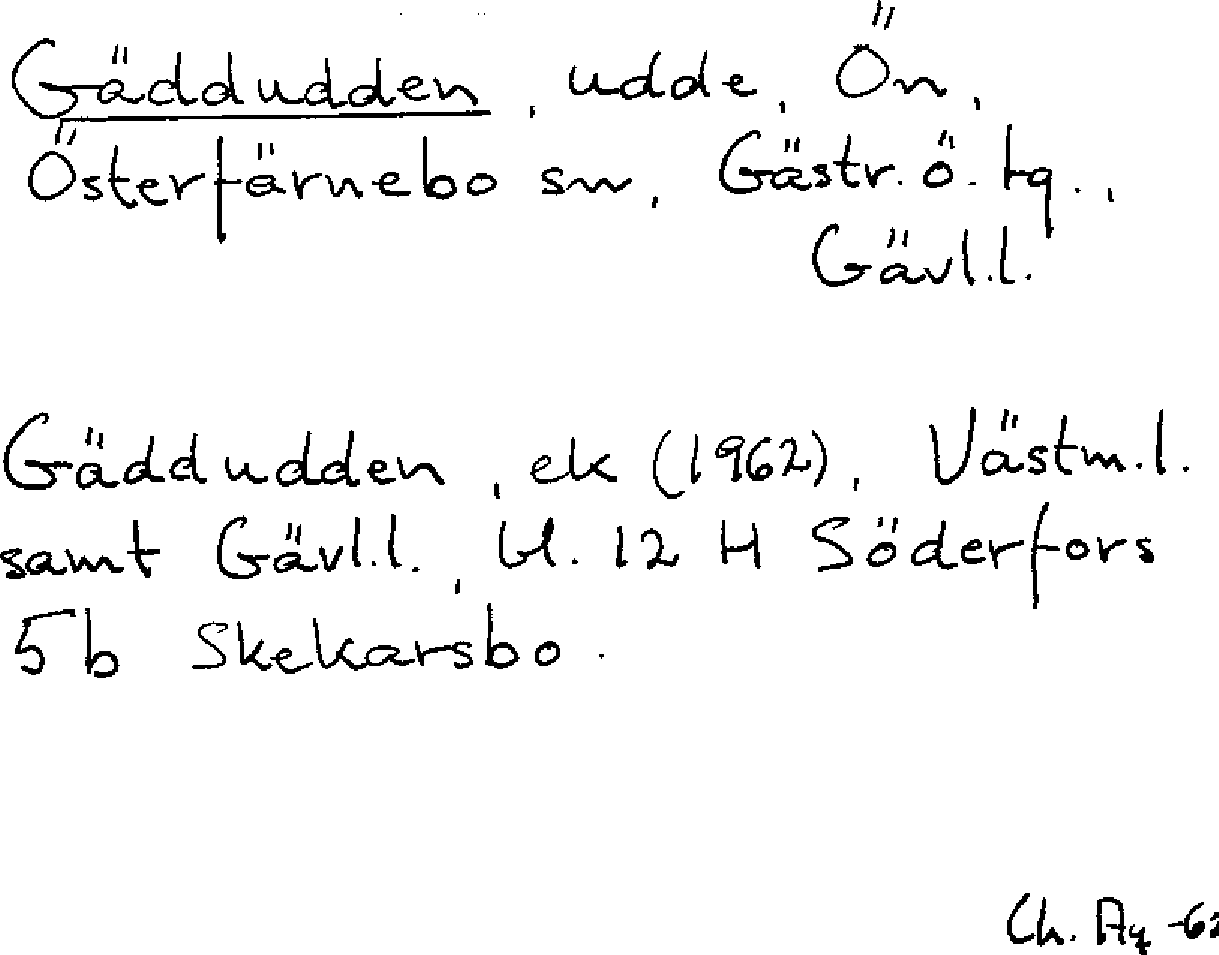 Gäddudden, udde, Ön,
Österfärnebo sn, Gästr. ö. tg.,
Gävl.l.
Gäddudden, ek (1962), Västm.l.
samt Gävl.l., bl. 12 H Söderfors
5b Skekarsbo.
Ch. Ag -62